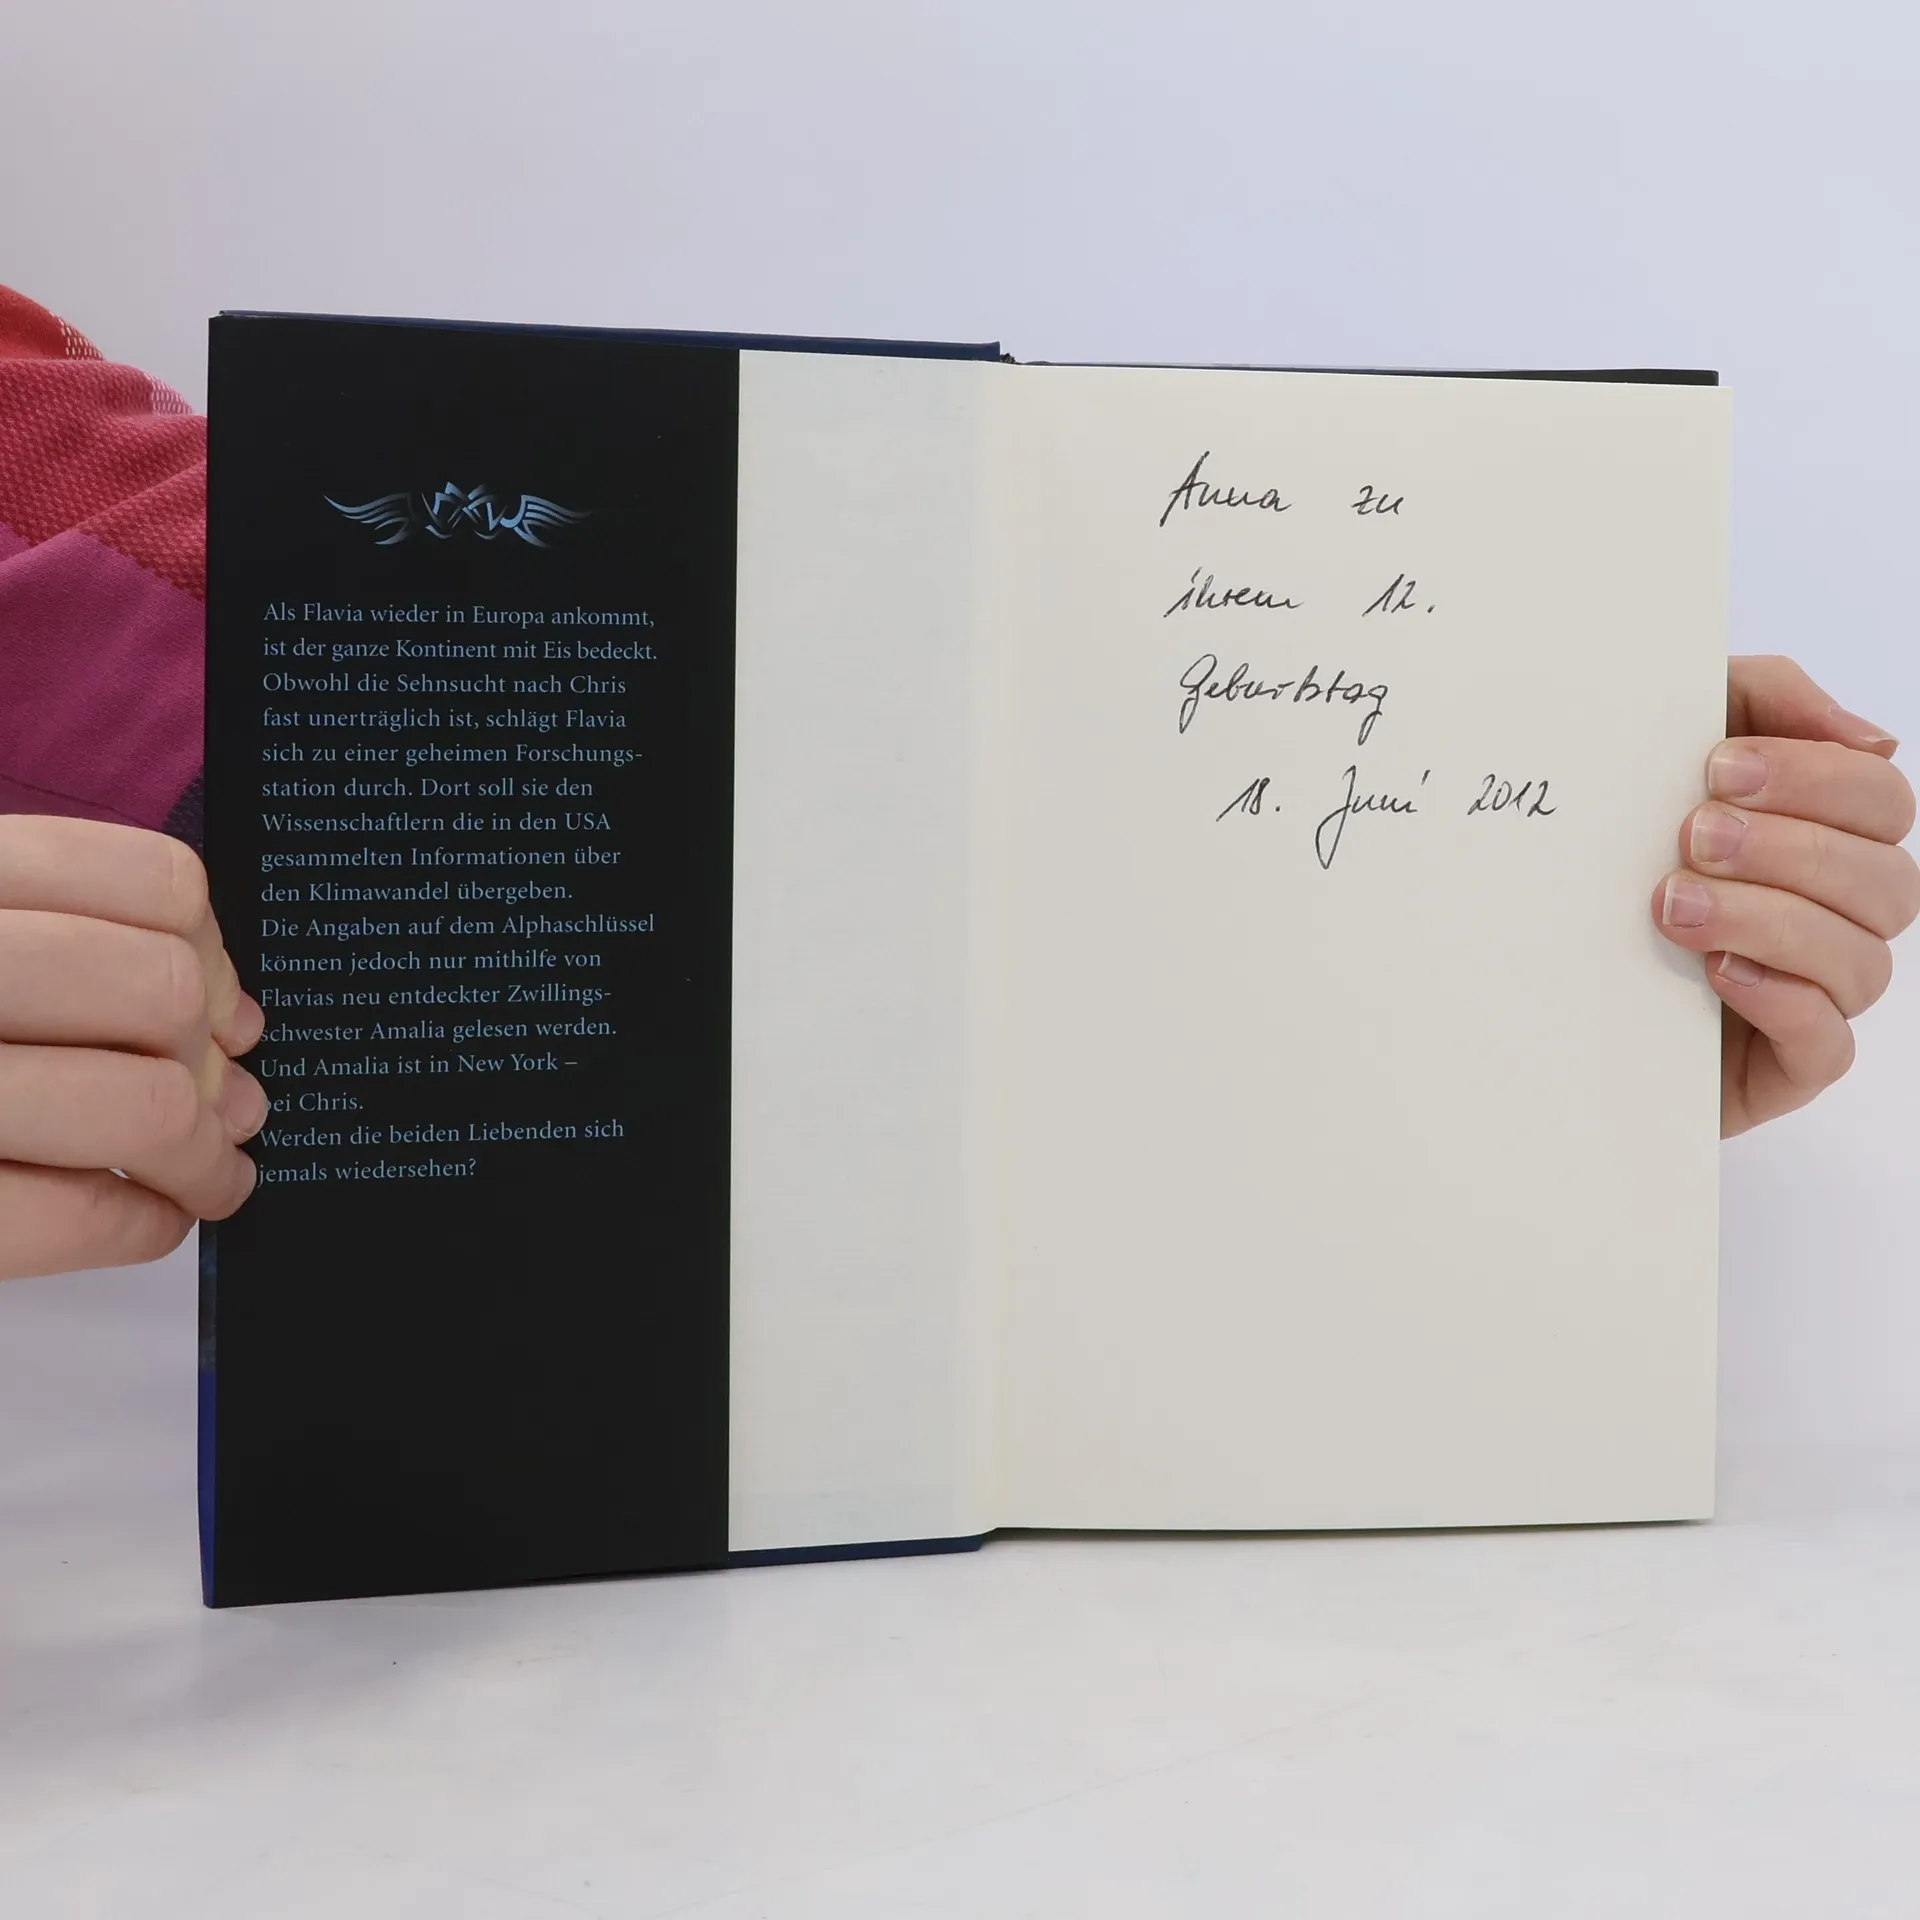 Als Flavia wieder in Europa ankommt,
ist der ganze Kontinent mit Eis bedeckt.
Obwohl die Sehnsucht nach Chris
fast unerträglich ist, schlägt Flavia
sich zu einer geheimen Forschungs-
station durch. Dort soll sie den
Wissenschaftlern die in den USA
gesammelten Informationen über
den Klimawandel übergeben.
Die Angaben auf dem Alphaschlüssel
können jedoch nur mithilfe von
Flavias neu entdeckter Zwillings-
schwester Amalia gelesen werden.
Und Amalia ist in New York –
bei Chris.
Werden die beiden Liebenden sich
jemals wiedersehen?
Anna zu
ihrem 12.
Geburtstag
18. Juni 2012